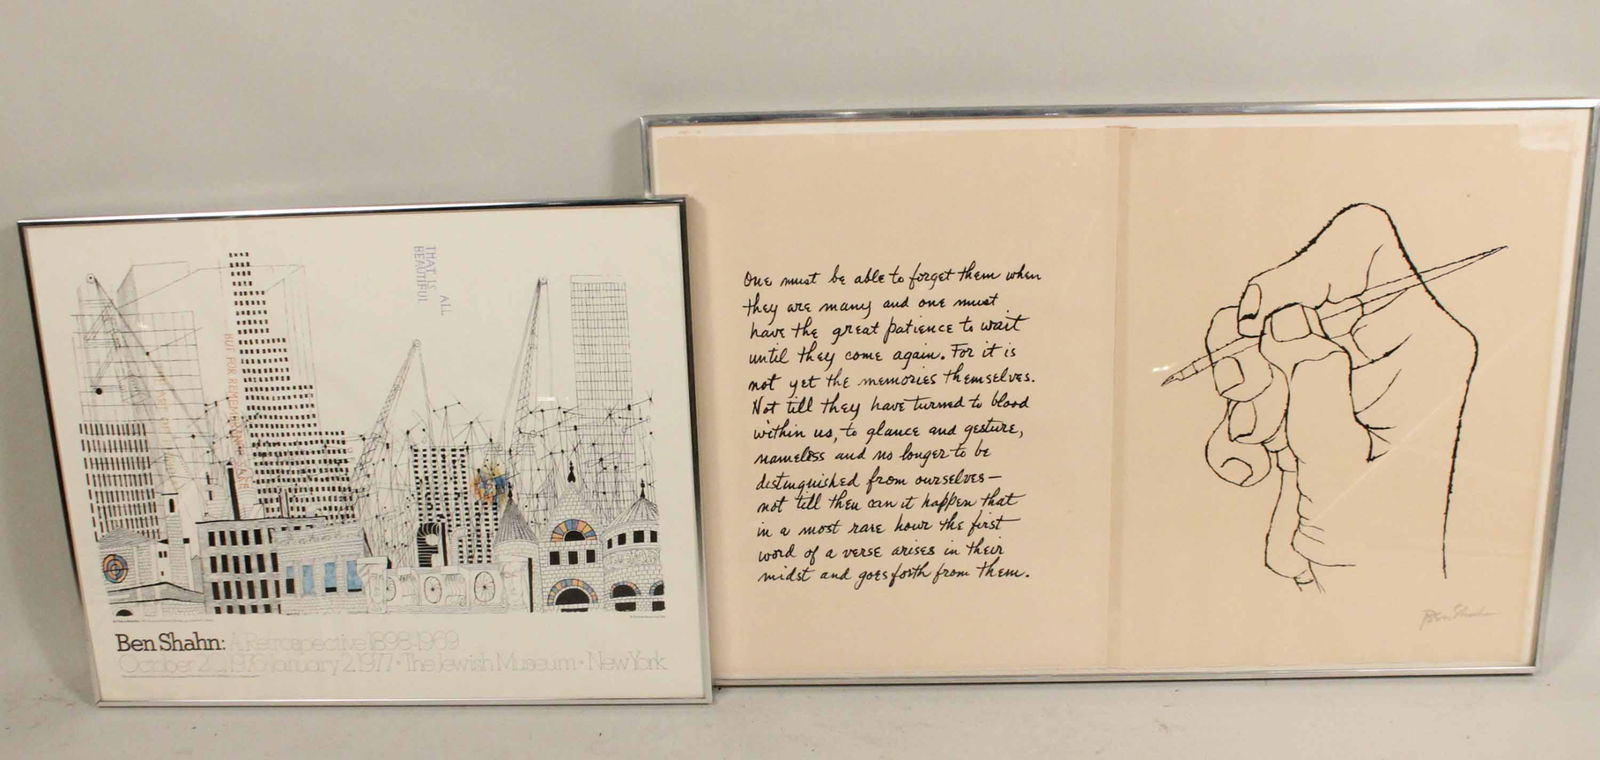 THAT IS ALL
BEAUTIFUL
Ben Shahn: A Retrospective 1898-1969
October 20, 1976-January 2, 1977 • The Jewish Museum • New York
One must be able to forget them when
they are many and one must
have the great patience to wait
until they come again. For it is
not yet the memories themselves.
Not till they have turned to blood
within us, to glance and gesture,
nameless and no longer to be
distinguished from ourselves—
not till then can it happen that
in a most rare hour the first
word of a verse arises in their
midst and goes forth from them.
Ben Shahn